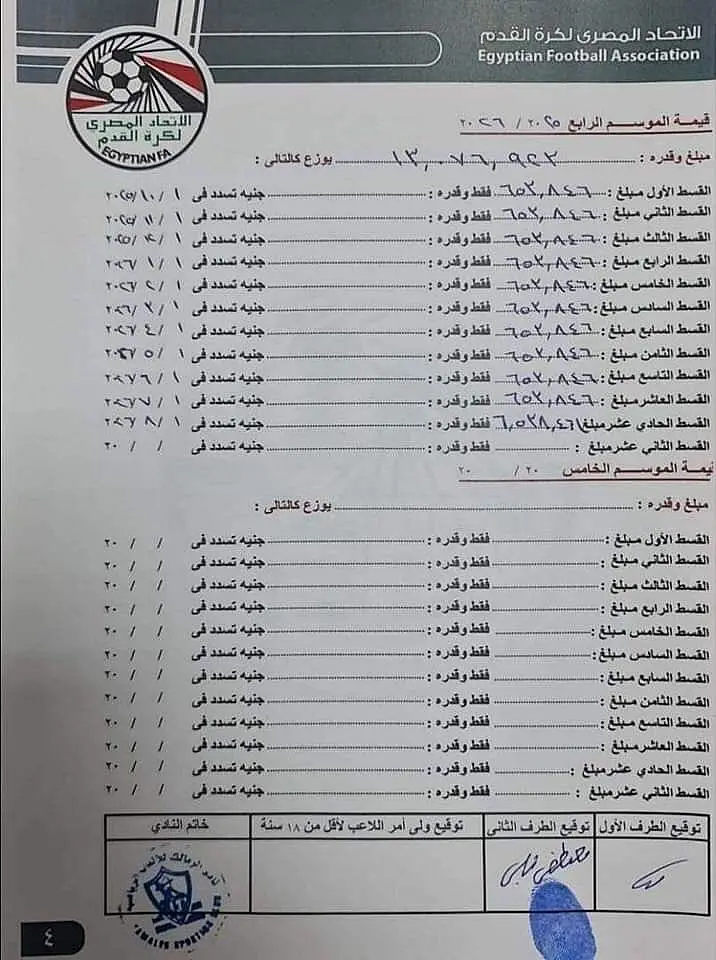 الاتحاد المصري لكرة القدم
Egyptian Football Association
الاتحاد المصري
لكرة القدم
EGYPTIAN FA
قيمة الموسم الرابع ٢٠٢٥ / ٢٠٢٦
مبلغ وقدره : ١٣,٠٧٦,٩٢٣ يوزع كالتالى :
القسط الأول مبلغ : ٦٥٣,٨٤٦ فقط وقدره : جنيه تسدد فى ١ / ١٠ / ٢٠٢٥
القسط الثاني مبلغ : ٦٥٣,٨٤٦ فقط وقدره : جنيه تسدد فى ١ / ١١ / ٢٠٢٥
القسط الثالث مبلغ : ٦٥٣,٨٤٦ فقط وقدره : جنيه تسدد فى ١ / ١٢ / ٢٠٢٥
القسط الرابع مبلغ : ٦٥٣,٨٤٦ فقط وقدره : جنيه تسدد فى ١ / ١ / ٢٠٢٦
القسط الخامس مبلغ : ٦٥٣,٨٤٦ فقط وقدره : جنيه تسدد فى ١ / ٢ / ٢٠٢٦
القسط السادس مبلغ : ٦٥٣,٨٤٦ فقط وقدره : جنيه تسدد فى ١ / ٣ / ٢٠٢٦
القسط السابع مبلغ : ٦٥٣,٨٤٦ فقط وقدره : جنيه تسدد فى ١ / ٤ / ٢٠٢٦
القسط الثامن مبلغ : ٦٥٣,٨٤٦ فقط وقدره : جنيه تسدد فى ١ / ٥ / ٢٠٢٦
القسط التاسع مبلغ : ٦٥٣,٨٤٦ فقط وقدره : جنيه تسدد فى ١ / ٦ / ٢٠٢٦
القسط العاشر مبلغ : ٦٥٣,٨٤٦ فقط وقدره : جنيه تسدد فى ١ / ٧ / ٢٠٢٦
القسط الحادي عشر مبلغ فقط وقدره : جنيه تسدد فى ١ / ٨ / ٢٠٢٦
القسط الثاني عشر مبلغ : فقط وقدره : جنيه تسدد فى / / ٢٠
قيمة الموسم الخامس ٢٠ / ٢٠
مبلغ وقدره : يوزع كالتالى :
القسط الأول مبلغ : فقط وقدره : جنيه تسدد فى / / ٢٠
القسط الثاني مبلغ : فقط وقدره : جنيه تسدد فى / / ٢٠
القسط الثالث مبلغ : فقط وقدره : جنيه تسدد فى / / ٢٠
القسط الرابع مبلغ : فقط وقدره : جنيه تسدد فى / / ٢٠
القسط الخامس مبلغ : فقط وقدره : جنيه تسدد فى / / ٢٠
القسط السادس مبلغ : فقط وقدره : جنيه تسدد فى / / ٢٠
القسط السابع مبلغ : فقط وقدره : جنيه تسدد فى / / ٢٠
القسط الثامن مبلغ : فقط وقدره : جنيه تسدد فى / / ٢٠
القسط التاسع مبلغ : فقط وقدره : جنيه تسدد فى / / ٢٠
القسط العاشر مبلغ : فقط وقدره : جنيه تسدد فى / / ٢٠
القسط الحادي عشر مبلغ : فقط وقدره : جنيه تسدد فى / / ٢٠
القسط الثاني عشر مبلغ : فقط وقدره : جنيه تسدد فى / / ٢٠
توقيع الطرف الأول توقيع الطرف الثانى توقيع ولى أمر اللاعب لأقل من ١٨ سنة خاتم النادي
نادى الزمالك للألعاب الرياضية
ZAMALEK SPORTING CLUB
٤